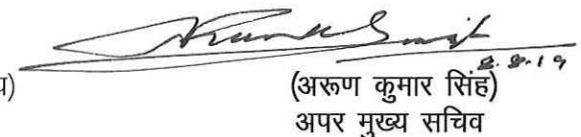 8.8.19
(अरुण कुमार सिंह)
अपर मुख्य सचिव